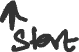 ↑
Start